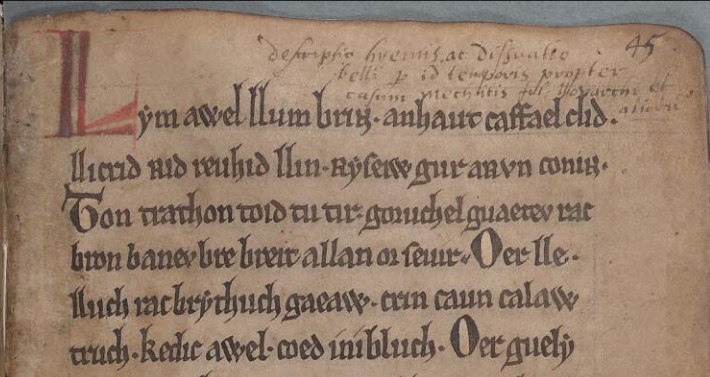 descriptio hyemis, ac dissuasio 45
belli p id temporis propter
casum Mechitis fil. et
Lym awel llum brin. anhaut caffael clid.
llicrid rid reuhid llin. ryseiw gur arvn conin.
Ton trathon toid tu tir. goruchel guaetev rac
bron banev bre breit allan or seuir. Oer lle.
lluch rac brythuch gaeaw. crin caun calaw
truch. kedic awel. coed inibluch. Oer guely